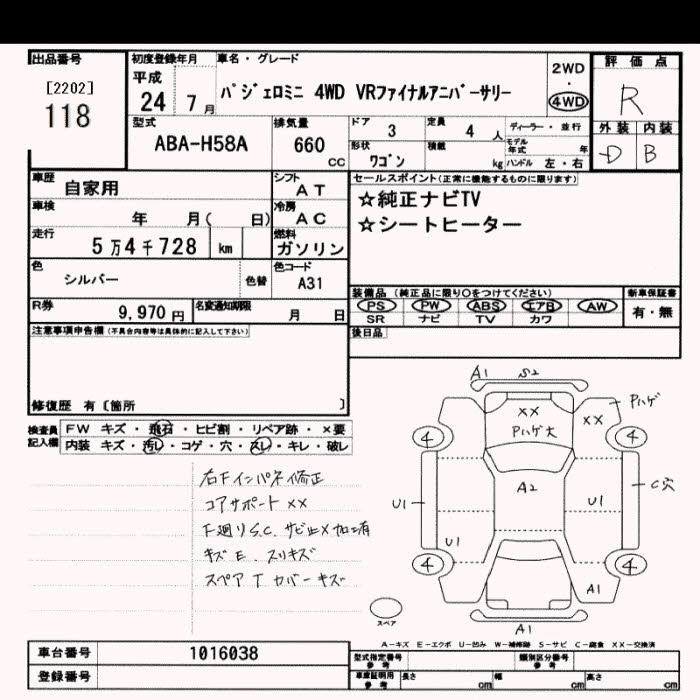 出品番号
[2202]
118
初度登録年月
平成
24 7 月
車名・グレード
パジェロミニ 4WD VRファイナルアニバーサリー
2WD
・
4WD
評価点
R
外装 内装
D B
型式
ABA-H58A
排気量
660
cc
ドア 3
定員 4 人
形状 ワゴン
積載 kg
ディーラー・並行
モデル年式 年
ハンドル 左・右
車歴 自家用
シフト AT
車検 年 月( 日)
冷房 AC
走行 5万4千728 km
燃料 ガソリン
色 シルバー
色替
色コード A31
R券 9,970 円
名変通知期限 月 日
セールスポイント(正常に機能するものに限ります)
☆純正ナビTV
☆シートヒーター
装備品 (純正品に限り〇をつけてください)
PS PW ABS エアB AW
SR ナビ TV カワ
新車保証書
有・無
後日品
注意事項申告欄(不具合内容等は具体的に記入して下さい)
修復歴 有〔箇所 〕
検査員記入欄
FW キズ・飛石・ヒビ割・リペア跡・×要
内装 キズ・汚レ・コゲ・穴・スレ・キレ・破レ
右Fインパネ修正
コアサポート XX
下廻りS.C. サビ止メ加工有
キズE. スリキズ
スペアTカバーキズ
A1 S2
XX
Pハゲ大
XX
Pハゲ
4
4
A2
U1
U1
C穴
U1
4
4
A1
A1
スペア
A-キズ E-エクボ U-凹み W-補修跡 S-サビ C-腐食 XX-交換済
車台番号 1016038
登録番号
型式指定番号
参考
類別区分番号
参考
車庫証明用
参考
長さ cm
幅 cm
高さ cm